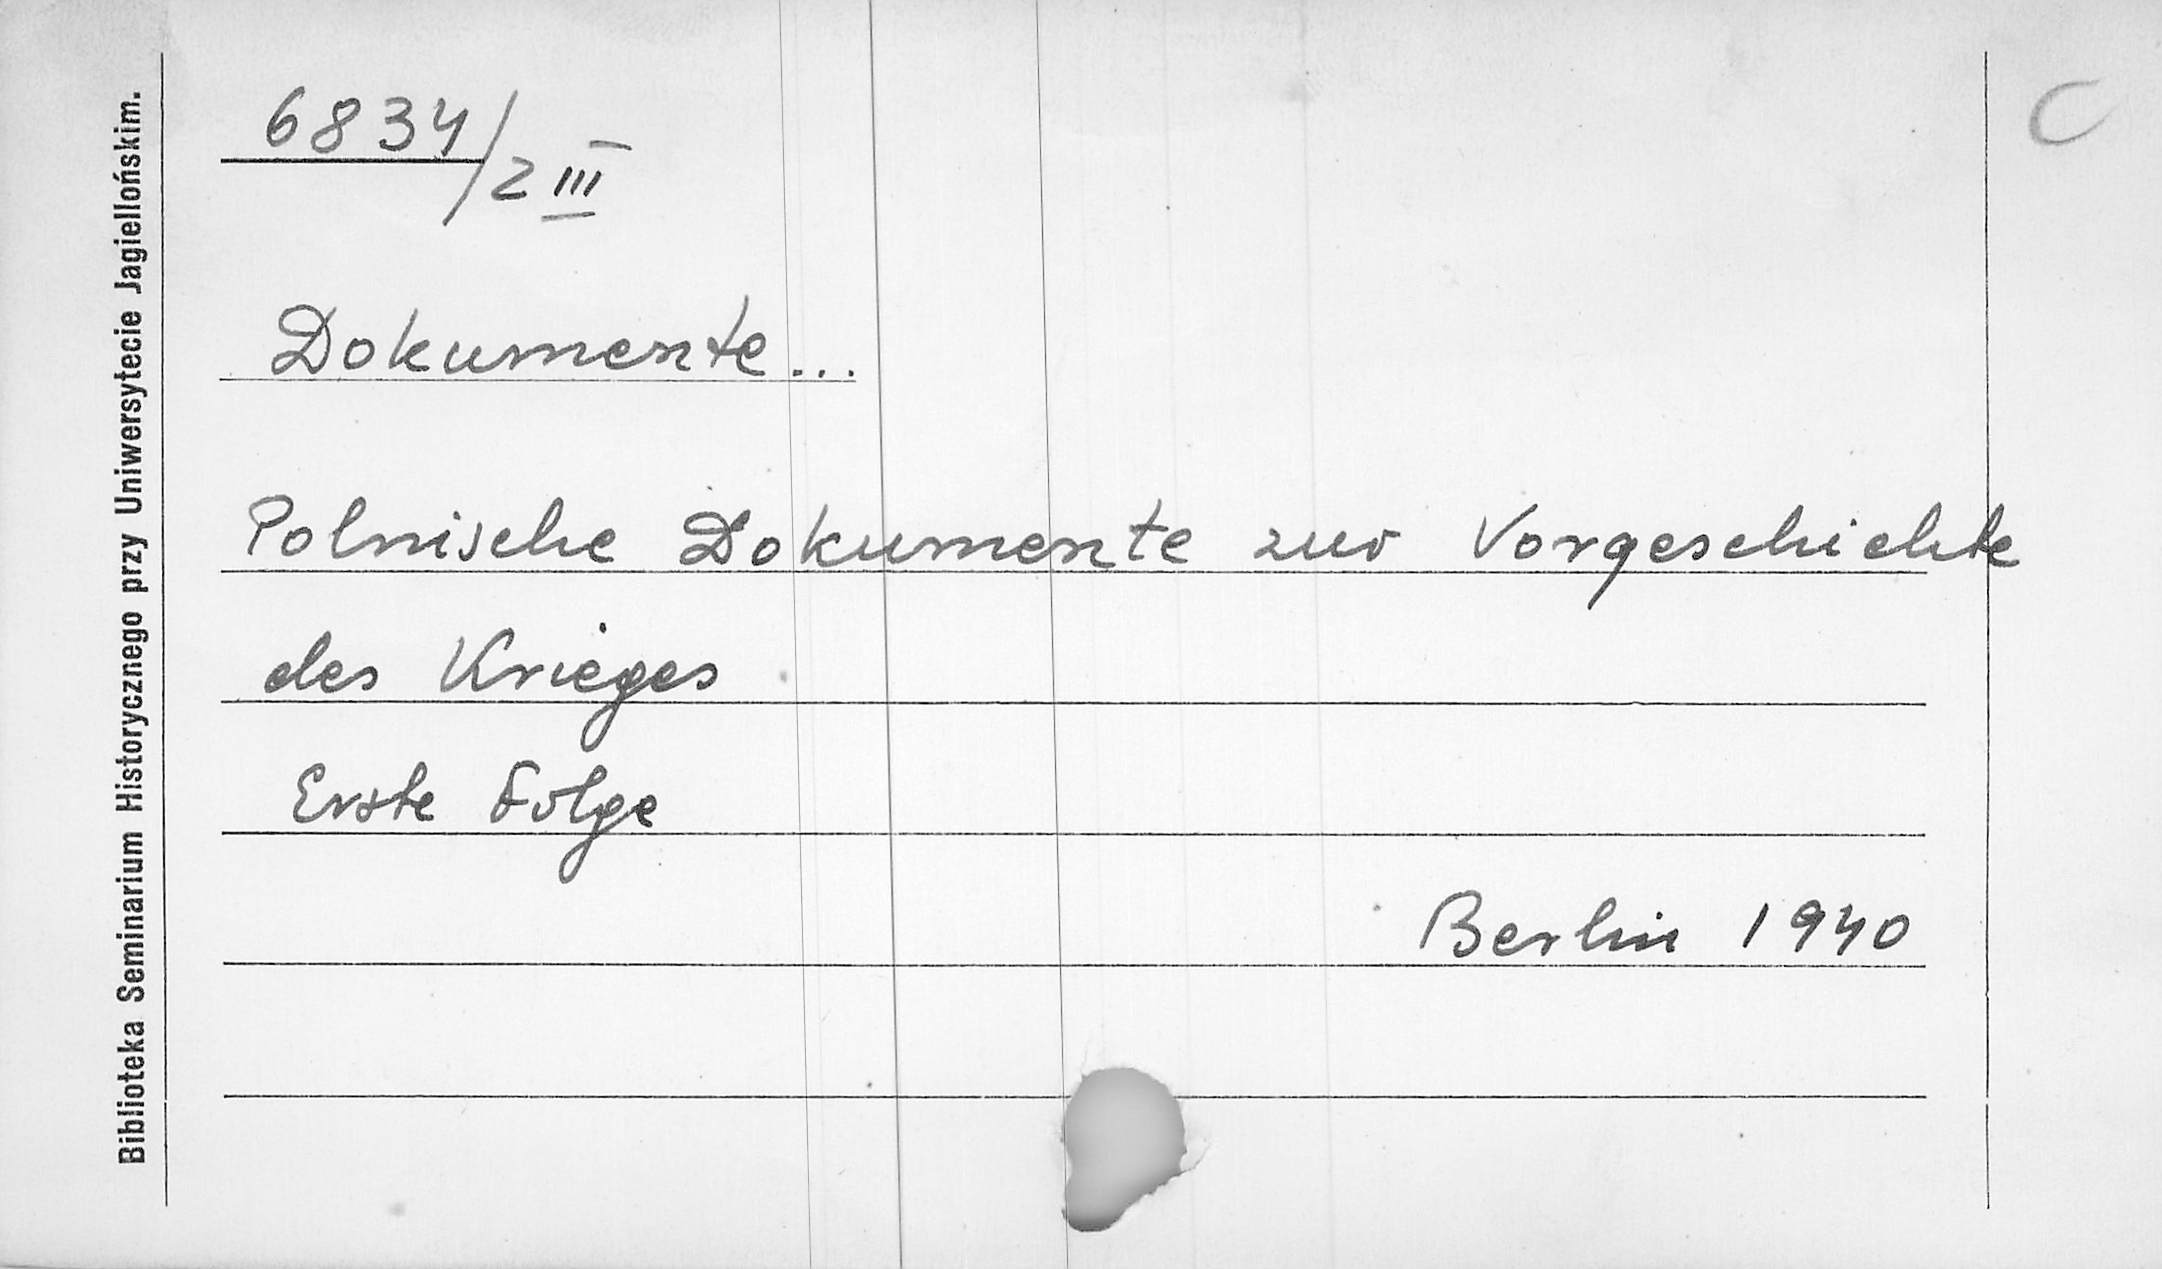 Biblioteka Seminarium Historycznego przy Uniwersytecie Jagiellońskim.
6834/2 III
C
Dokumente...
Polnische Dokumente zur Vorgeschichte
des Krieges
Erste Folge
Berlin 1940